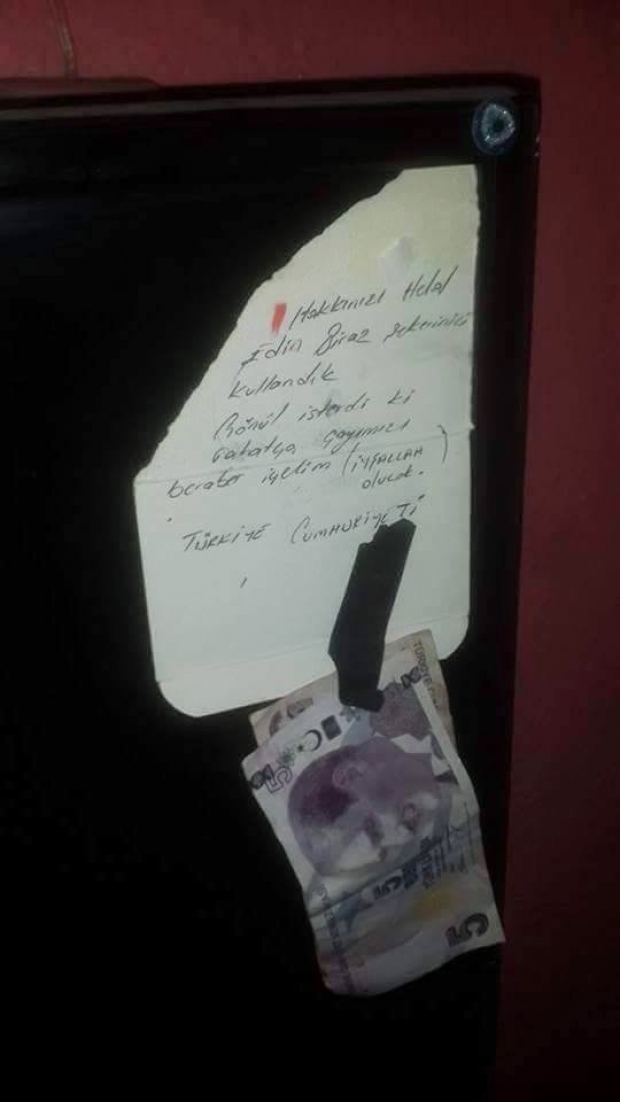 Hakkınızı Helal
Edin Biraz şekerinizi
kullandık
Gönül isterdi ki
rahatça çayımızı
beraber içelim (İNŞALLAH
olucak.)
TÜRKİYE CUMHURİYETİ
TÜRKİYE
5
5
5